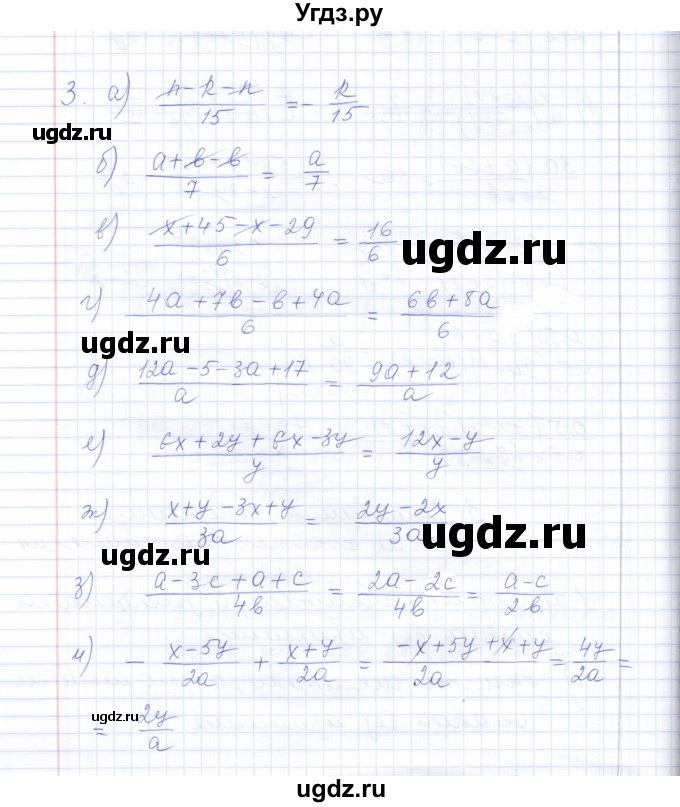 Угдз.ру
3. а) (n-k-n)/15 = - k/15
ugdz.ru
б) (a+b-b)/7 = a/7
в) (x+45-x-29)/6 = 16/6
ugdz.ru
г) (4a+7b-b+4a)/6 = (6b+8a)/6
ugdz.ru
д) (12a-5-3a+17)/a = (9a+12)/a
е) (6x+2y+6x-3y)/y = (12x-y)/y
ж) (x+y-3x+y)/3a = (2y-2x)/3a
ugdz.ru
ugdz.ru
з) (a-3c+a+c)/4b = (2a-2c)/4b = (a-c)/2b
и) - (x-5y)/2a + (x+y)/2a = (-x+5y+x+y)/2a = 4y/2a =
= 2y/a
ugdz.ru
ugdz.ru